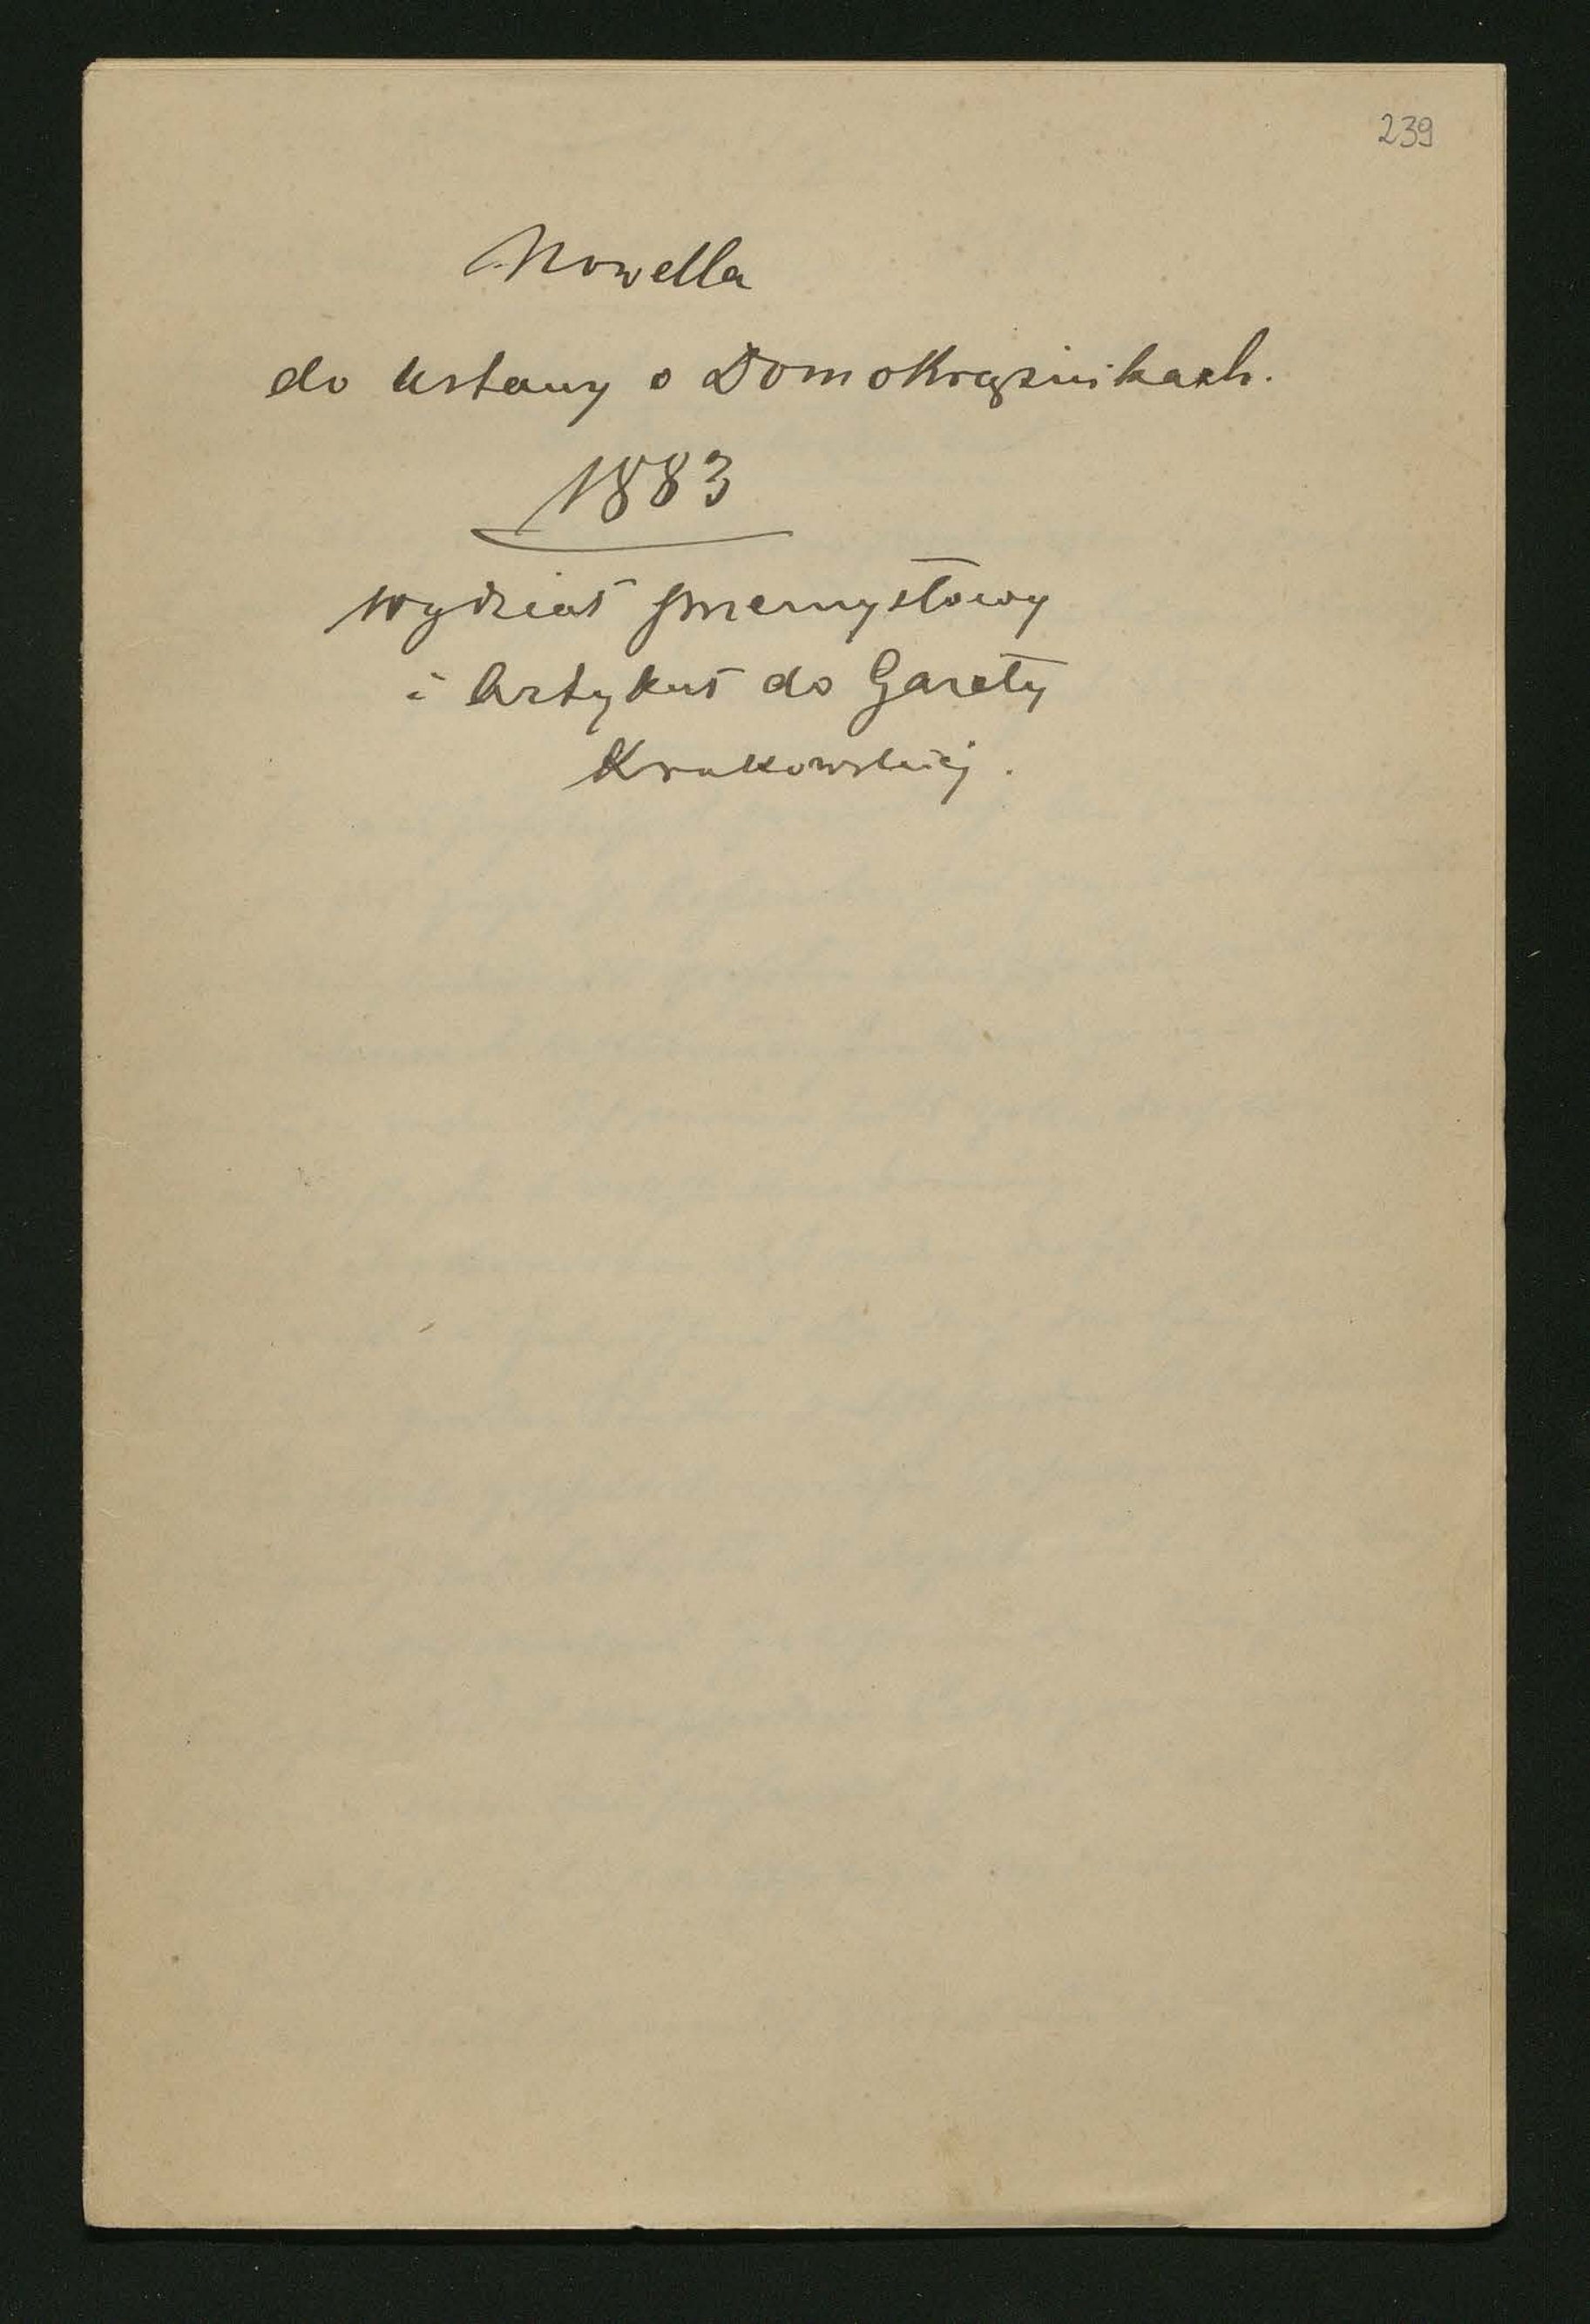 239
Nowella
do Ustawy o Domokrążnikach.
1883
Wydział przemysłowy
i Artykuł do Gazety
Krakowskiej.